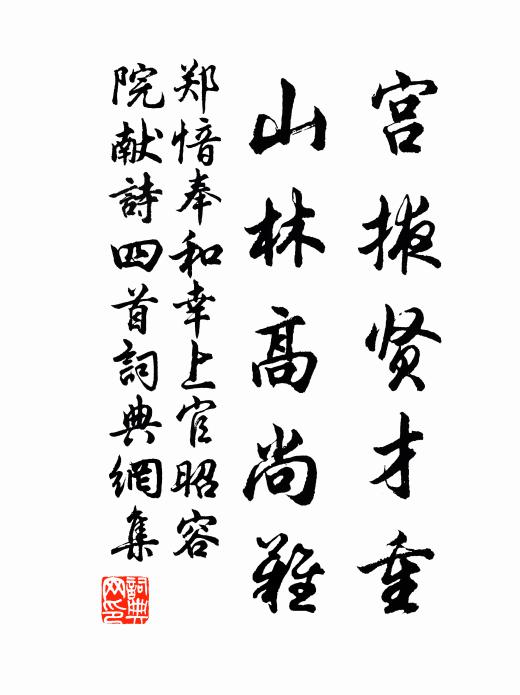 宫掖贤才重
山林高尚难
郑愔奉和幸上官昭容
院献詩四首詞典網集
詞典网印